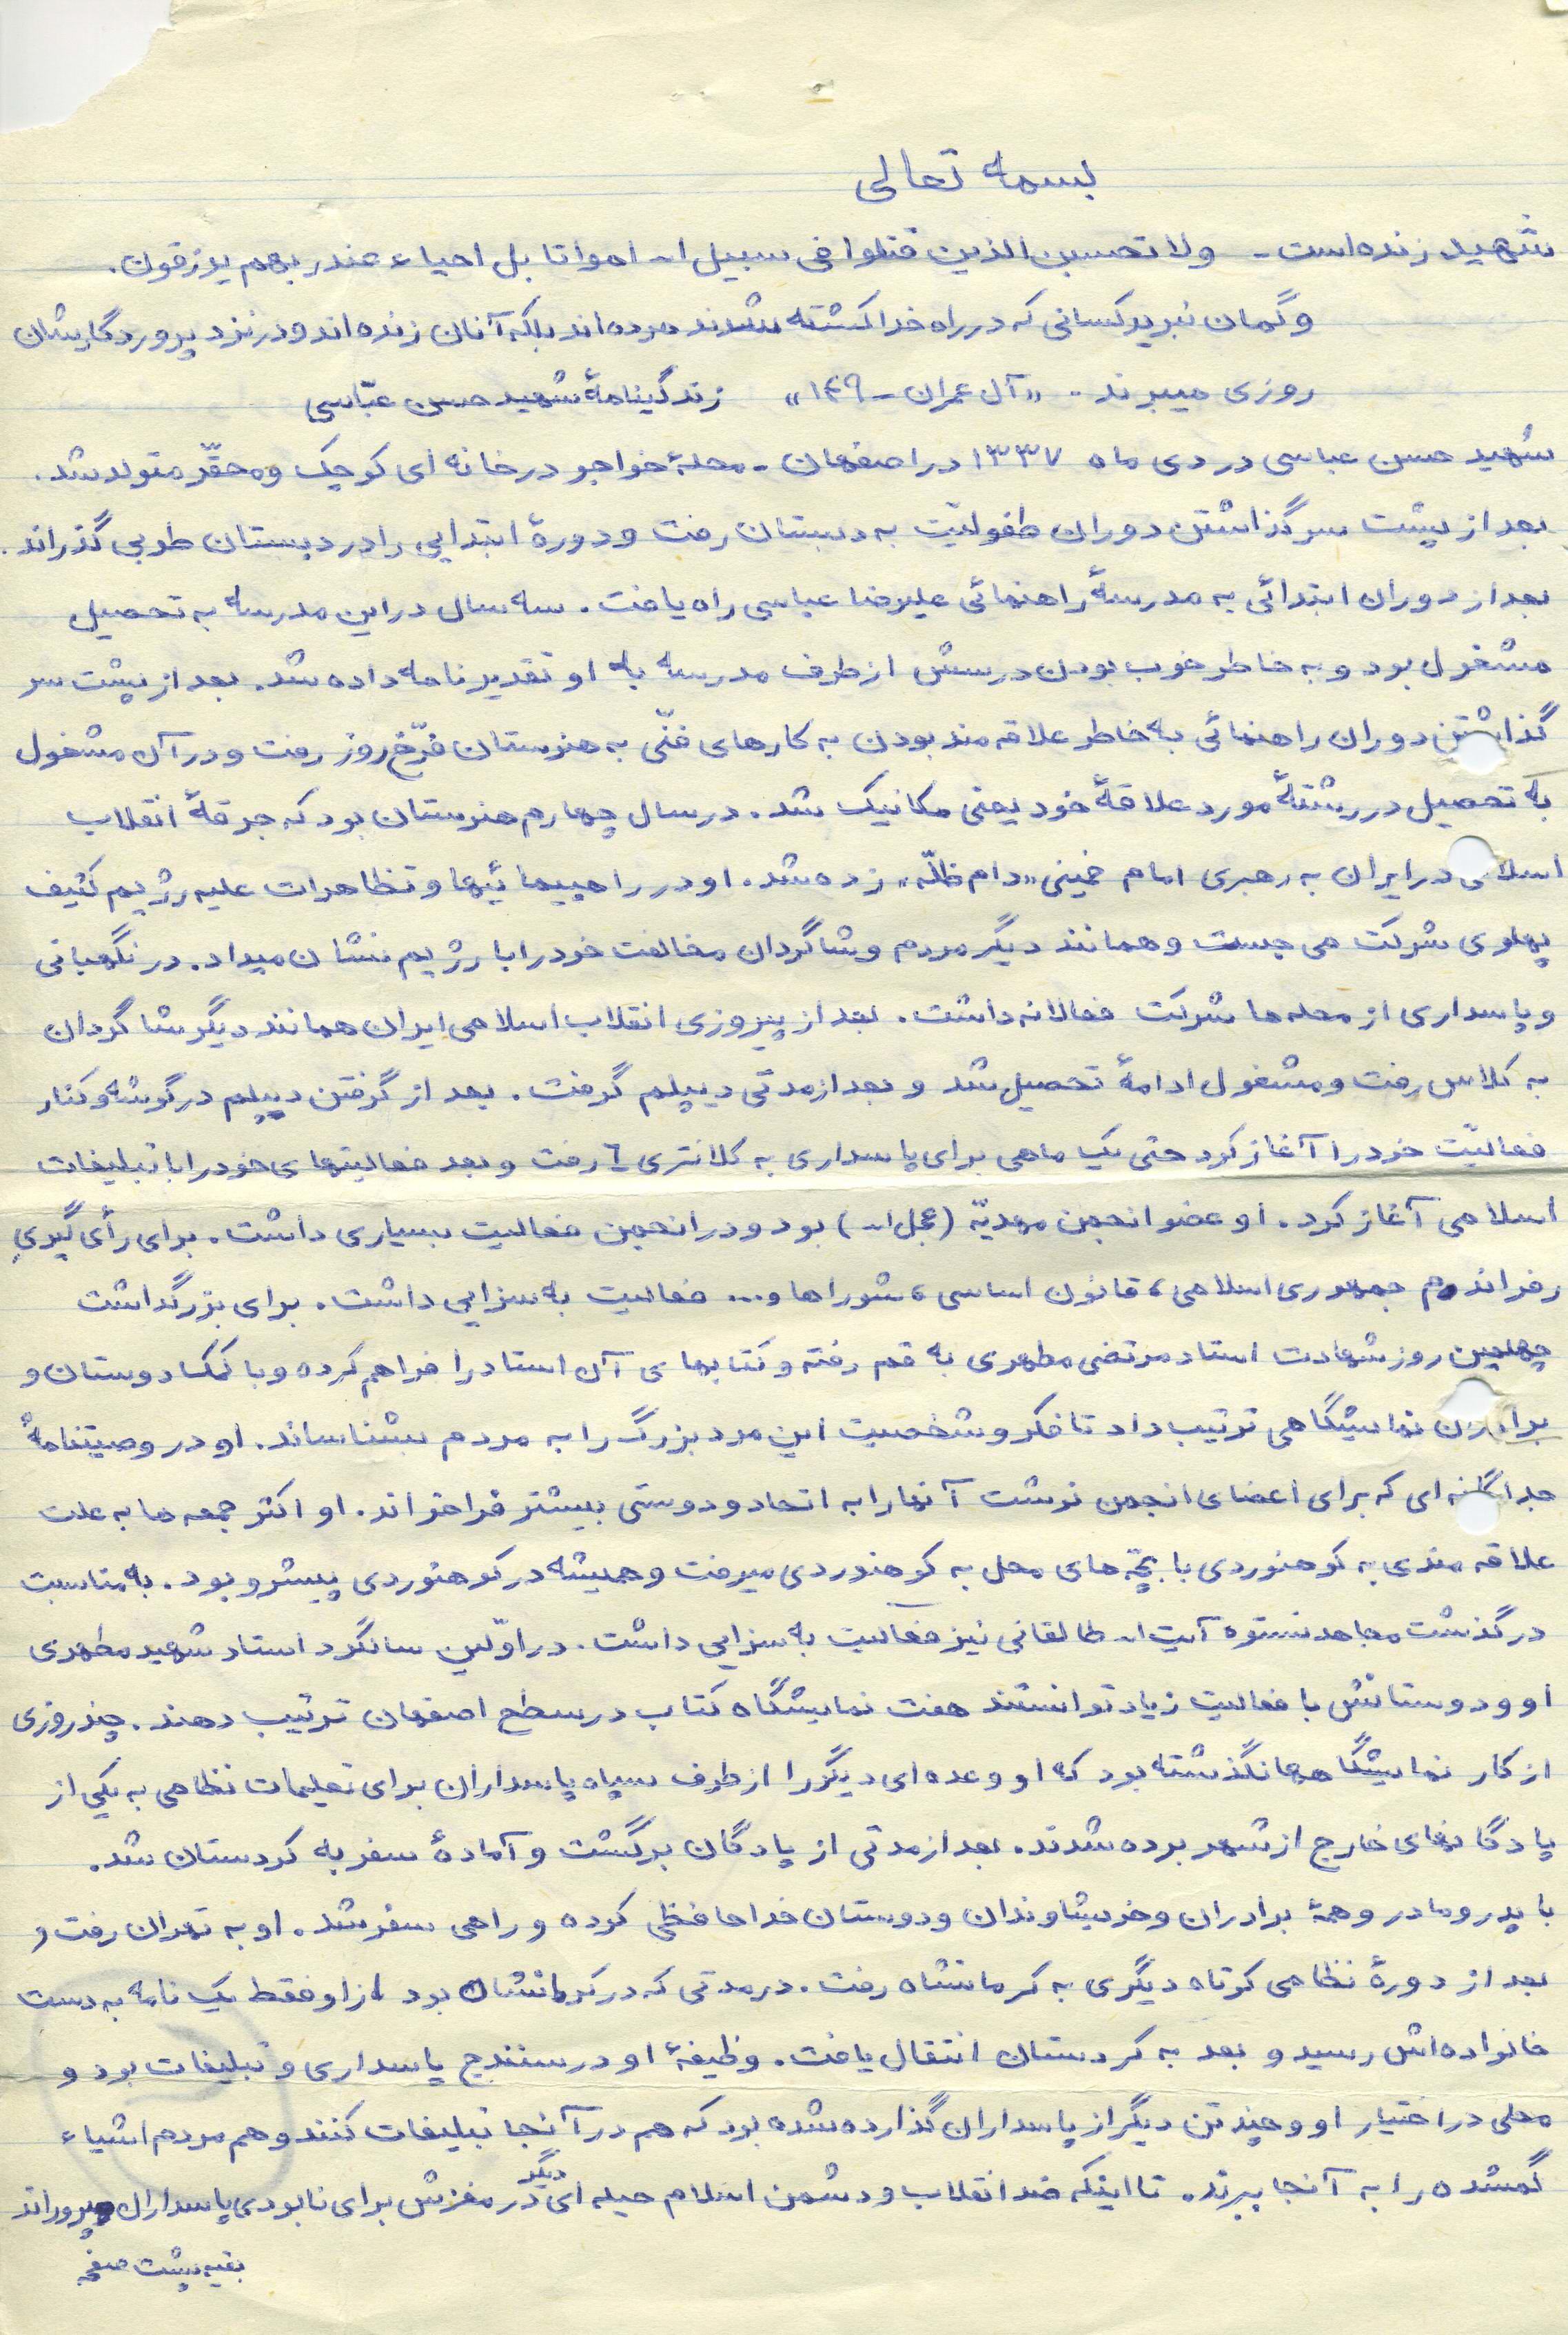 بسمه تعالی
شهید زنده است - ولا تحسبن الذین قتلوا فی سبیل ا.. امواتا بل احیاء عند ربهم یرزقون.
وگمان نبرید کسانی که در راه خدا کشته شدند مرده‌اند بلکه آنان زنده‌اند و در نزد پروردگارشان
روزی میبرند - «آل عمران - ۱۴۹» زندگینامهٔ شهید حسن عبّاسی
شهید حسن عباسی در دی ماه ۱۳۳۷ در اصفهان - محلهٔ خواجو در خانه ای کوچک و محقّر متولد شد.
بعد از پشت سر گذاشتن دوران طفولیّت به دبستان رفت و دورهٔ ابتدایی را در دبستان طوبی گذراند.
بعد از دوران ابتدائی به مدرسهٔ راهنمائی علیرضا عباسی راه یافت. سه سال در این مدرسه به تحصیل
مشغول بود و به خاطر خوب بودن درسش از طرف مدرسه به او تقدیرنامه داده شد. بعد از پشت سر
گذاشتن دوران راهنمائی به خاطر علاقه مند بودن به کارهای فنّی به هنرستان فرّخ روز رفت و در آن مشغول
به تحصیل در رشتهٔ مورد علاقهٔ خود یعنی مکانیک شد. در سال چهارم هنرستان بود که جرقهٔ انقلاب
اسلامی در ایران به رهبری امام خمینی «دام ظلّه» زده شد. او در راهپیمائیها و تظاهرات علیه رژیم کثیف
پهلوی شرکت می جست و همانند دیگر مردم و شاگردان مخالفت خود را با رژیم نشان میداد. در نگهبانی
و پاسداری از محله ها شرکت فعالانه داشت. بعد از پیروزی انقلاب اسلامی ایران همانند دیگر شاگردان
به کلاس رفت و مشغول ادامهٔ تحصیل شد و بعد از مدتی دیپلم گرفت. بعد از گرفتن دیپلم در گوشه و کنار
فعالیّت خود را آغاز کرد حتی یک ماهی برای پاسداری به کلانتری ۶ رفت و بعد فعالیتهای خود را با تبلیغات
اسلامی آغاز کرد. او عضو انجمن مهدیّه (عجل ا..) بود و در انجمن فعالیت بسیاری داشت. برای رأی گیری
رفراندوم جمهوری اسلامی، قانون اساسی، شوراها و... فعالیت به سزایی داشت. برای بزرگداشت
چهلمین روز شهادت استاد مرتضی مطهری به قم رفته و کتابهای آن استاد را فراهم کرده و با کمک دوستان و
برادران نمایشگاهی ترتیب داد تا فکر و شخصیت این مرد بزرگ را به مردم بشناساند. او در وصیتنامهٔ
جداگانه ای که برای اعضای انجمن نوشت آنها را به اتحاد و دوستی بیشتر فراخواند. او اکثر جمعه ها به علت
علاقه مندی به کوهنوردی با بچّه های محل به کوهنوردی میرفت و همیشه در کوهنوردی پیشرو بود. به مناسبت
درگذشت مجاهد نستوه آیت ا.. طالقانی نیز فعالیت به سزایی داشت. در اوّلین سالگرد استاد شهید مطهری
او و دوستانش با فعالیت زیاد توانستند هفت نمایشگاه کتاب در سطح اصفهان ترتیب دهند. چند روزی
از کار نمایشگاهها نگذشته بود که او و عده ای دیگر را از طرف سپاه پاسداران برای تعلیمات نظامی به یکی از
پادگانهای خارج از شهر برده شدند. بعد از مدتی از پادگان برگشت و آمادهٔ سفر به کردستان شد.
با پدر و مادر و همهٔ برادران و خویشاوندان و دوستان خداحافظی کرده و راهی سفر شد. او به تهران رفت و
بعد از دورهٔ نظامی کوتاه دیگری به کرمانشاه رفت. در مدتی که در کرمانشاه بود از او فقط یک نامه به دست
خانواده اش رسید و بعد به کردستان انتقال یافت. وظیفهٔ او در سنندج پاسداری و تبلیغات بود و
محلی در اختیار او و چند تن دیگر از پاسداران گذارده شده بود که هم در آنجا تبلیغات کنند و هم مردم اشیاء
گمشده را به آنجا ببرند. تا اینکه ضد انقلاب و دشمن اسلام حیله ای دیگر در مغزش برای نابودی پاسداران پروراند
بقیه پشت صفحه